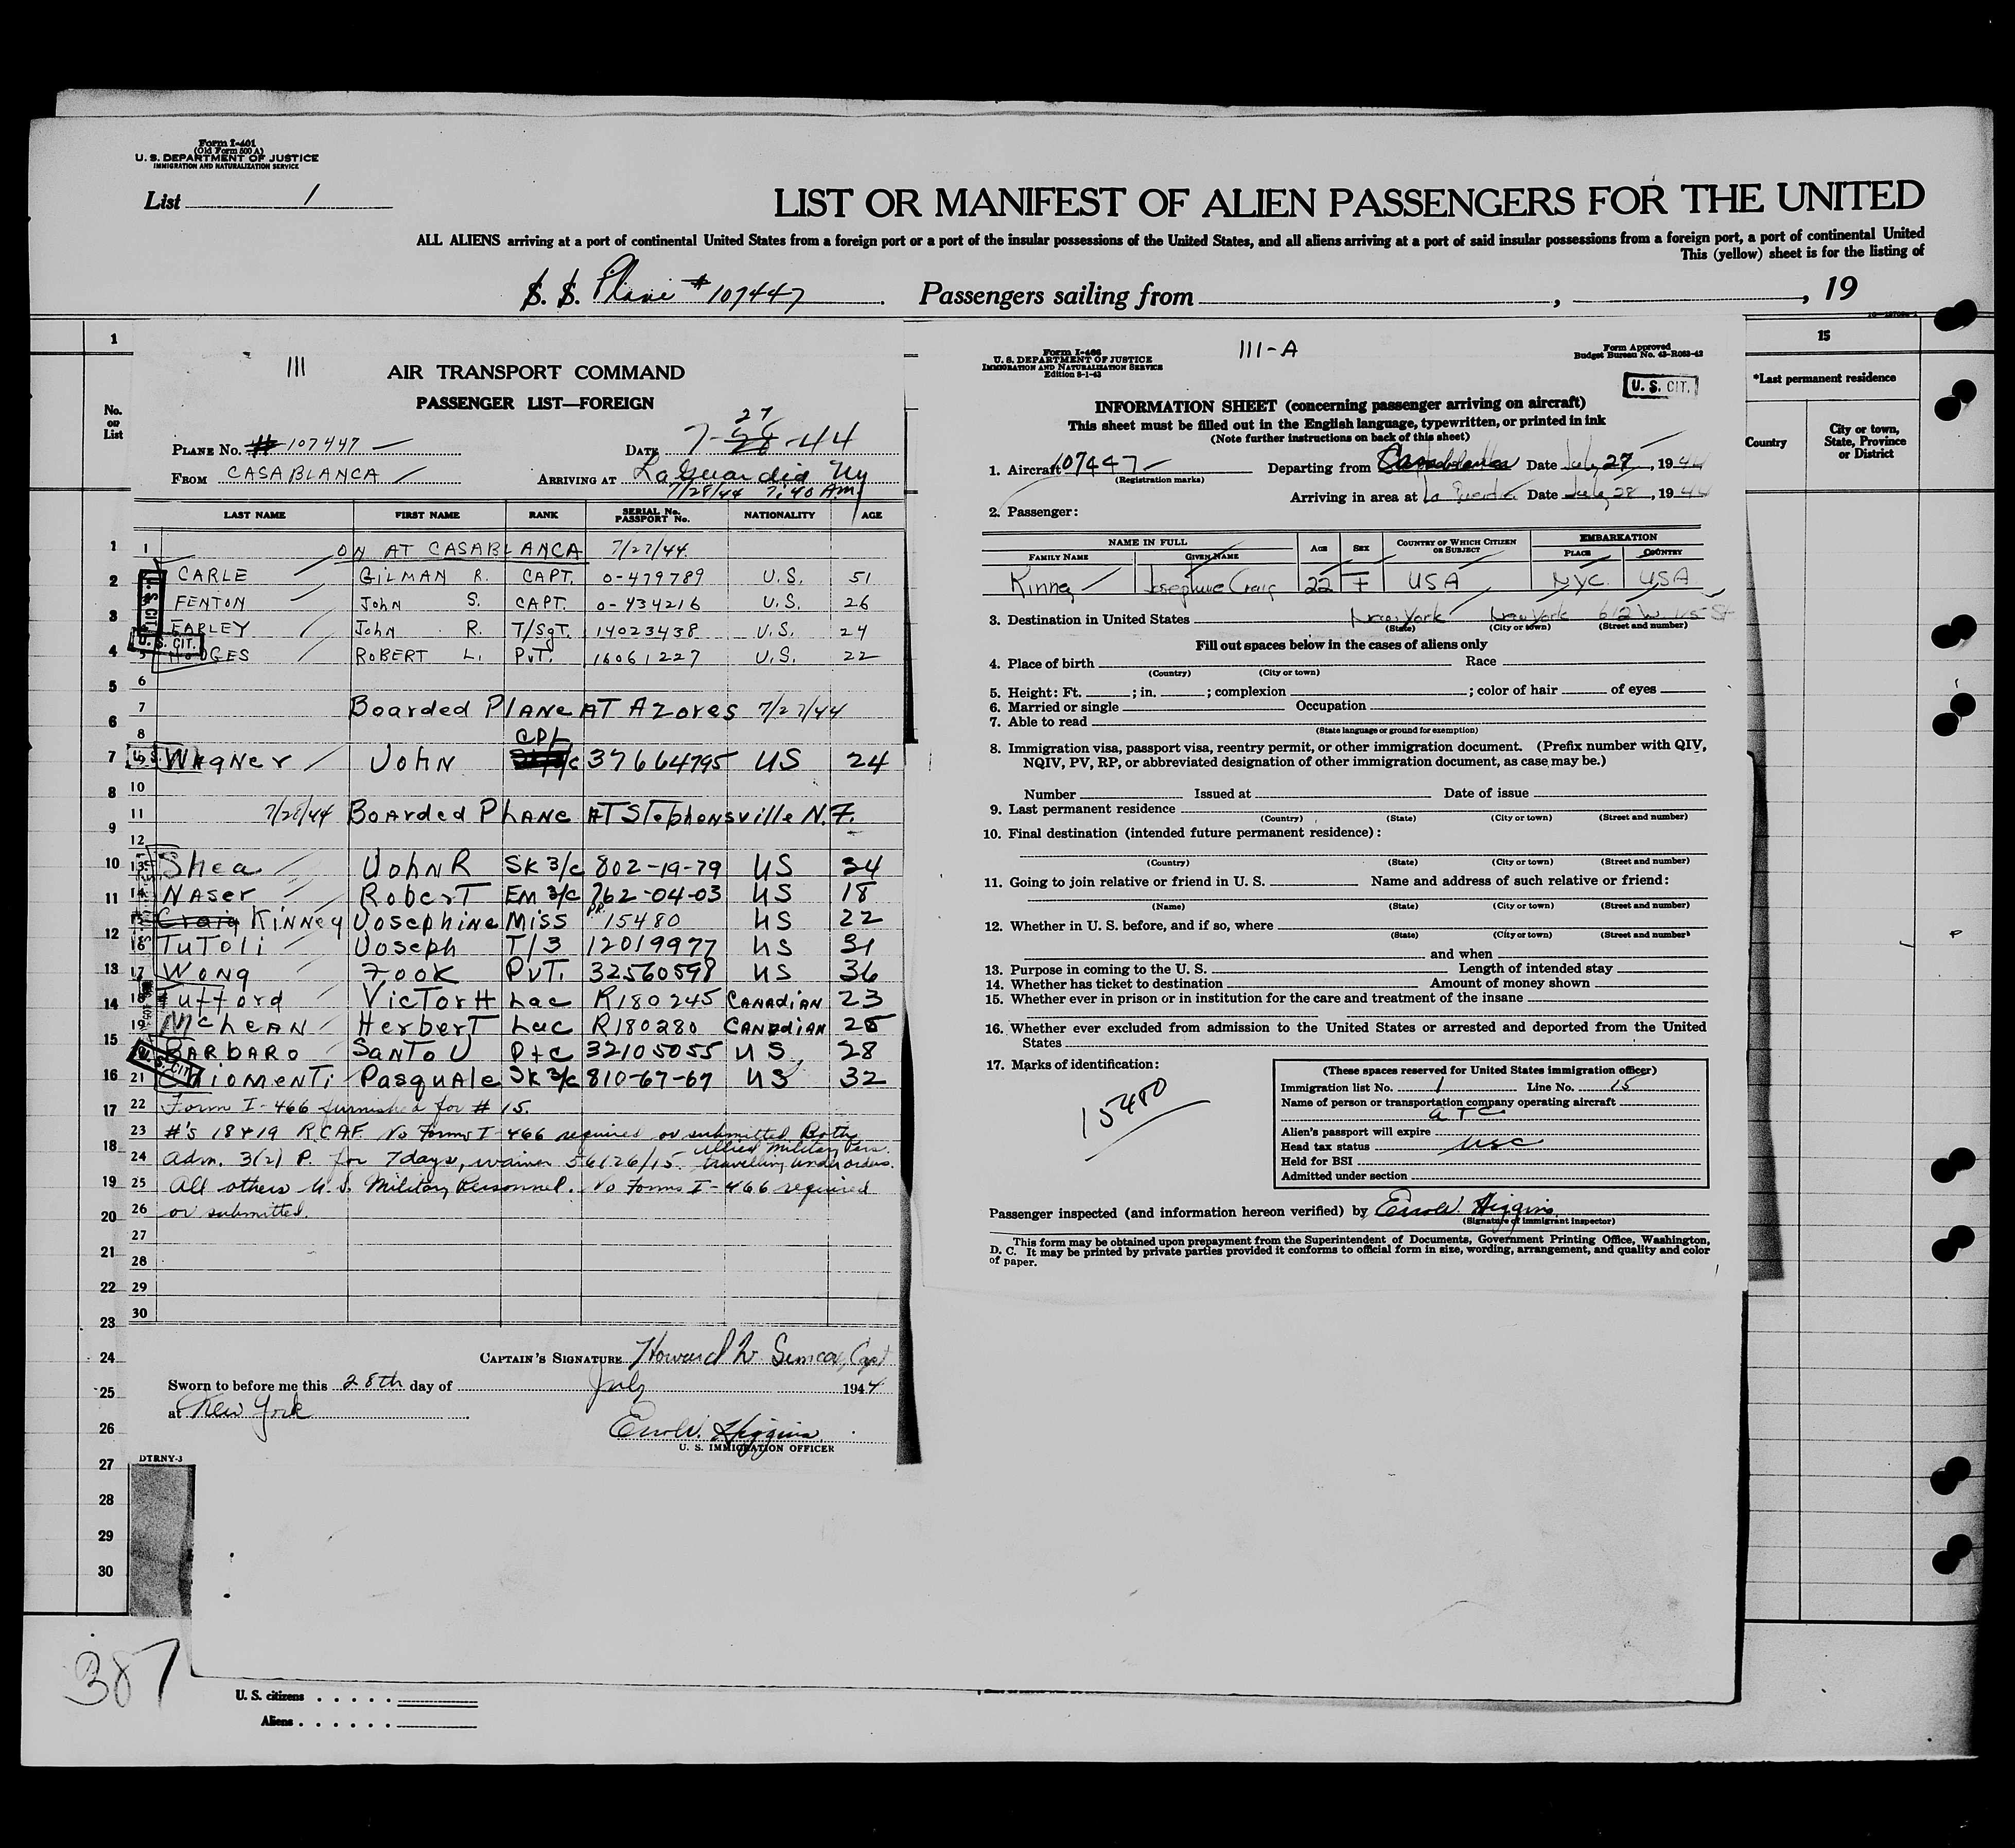 Form I-401
(Old Form 500 A)
U. S. DEPARTMENT OF JUSTICE
IMMIGRATION AND NATURALIZATION SERVICE
List 1
LIST OR MANIFEST OF ALIEN PASSENGERS FOR THE UNITED
ALL ALIENS arriving at a port of continental United States from a foreign port or a port of the insular possessions of the United States, and all aliens arriving at a port of said insular possessions from a foreign port, a port of continental United
This (yellow) sheet is for the listing of
S. S. Plane # 107447 Passengers sailing from , , 19
1
No. on List
111
AIR TRANSPORT COMMAND
PASSENGER LIST—FOREIGN
PLANE No. # 107447 DATE 7-28-44 27
FROM CASABLANCA ARRIVING AT LaGuardia Ny
7/28/44 7:40 A.M.
LAST NAME FIRST NAME RANK SERIAL No. PASSPORT No. NATIONALITY AGE
1 ON AT CASABLANCA 7/27/44
CARLE GILMAN R. CAPT. O-479789 U.S. 51
FENTON John S. CAPT. O-434216 U.S. 26
FARLEY John R. T/SgT. 14023438 U.S. 24
5 HODGES ROBERT L. PvT. 16061227 U.S. 22
U. S. CIT.
U. S. CIT.
6
7 Boarded Plane AT Azores 7/27/44
8
Wagner John CPL 37664795 US 24
10
11 7/28/44 Boarded Plane AT Stephensville N.F.
12
13 Shea John R Sk 3/c 802-19-79 US 34
14 Naser Robert Em 3/c 762-04-03 US 18
15 Craig Kinney Josephine Miss PP. 15480 US 22
16 Tutoli Joseph T/3 12019977 US 31
17 Wong Fook PvT. 32560598 US 36
18 Tufford Victor H Lac R180245 Canadian 23
19 McLean Herbert Lac R180280 Canadian 25
Barbaro Santo J Pfc 32105055 US 28
21 Chiomenti Pasquale Sk 3/c 810-67-67 US 32
U. S. CIT.
22 Form I-466 furnished for # 15.
23 #'s 18 & 19 R.C.A.F. No Forms I-466 required or submitted. Both
24 Adm. 3(2) P. for 7 days, waiver 56126/15. Allied Military Pers. travelling under orders.
25 All others U.S. Military Personnel. No Forms I-466 required
26 or submitted.
27
28
29
30
CAPTAIN'S SIGNATURE Howard W
Sworn to before me this 28th day of July 1944
at New York
Higgins
U. S. IMMIGRATION OFFICER
DTRNY-3
1
2
3
4
5
6
7
8
9
10
11
12
13
14
15
16
17
18
19
20
21
22
23
24
25
26
27
28
29
30
387
U. S. citizens
Aliens
Form I-466
U. S. DEPARTMENT OF JUSTICE
IMMIGRATION AND NATURALIZATION SERVICE
Edition 8-1-43
111-A
Form Approved
Budget Bureau No. 43-R053-43
U. S. CIT.
INFORMATION SHEET (concerning passenger arriving on aircraft)
This sheet must be filled out in the English language, typewritten, or printed in ink
(Note further instructions on back of this sheet)
1. Aircraft 107447 Departing from Casablanca Date July 27, 1944
(Registration marks)
Arriving in area at La Guardia Date July 28, 1944
2. Passenger:
NAME IN FULL AGE SEX COUNTRY OF WHICH CITIZEN OR SUBJECT EMBARKATION
FAMILY NAME GIVEN NAME PLACE COUNTRY
Kinney Josephine Craig 22 F USA NYC USA
3. Destination in United States New York New York 612 W. St
(State) (City or town) (Street and number)
Fill out spaces below in the cases of aliens only
4. Place of birth Race
(Country) (City or town)
5. Height: Ft. ; in. ; complexion ; color of hair of eyes
6. Married or single Occupation
7. Able to read
(State language or ground for exemption)
8. Immigration visa, passport visa, reentry permit, or other immigration document. (Prefix number with QIV,
NQIV, PV, RP, or abbreviated designation of other immigration document, as case may be.)
Number Issued at Date of issue
9. Last permanent residence
(Country) (State) (City or town) (Street and number)
10. Final destination (intended future permanent residence):
(Country) (State) (City or town) (Street and number)
11. Going to join relative or friend in U. S. Name and address of such relative or friend:
(Name) (State) (City or town) (Street and number)
12. Whether in U. S. before, and if so, where
(State) (City or town) (Street and number)
and when
13. Purpose in coming to the U. S. Length of intended stay
14. Whether has ticket to destination Amount of money shown
15. Whether ever in prison or in institution for the care and treatment of the insane
16. Whether ever excluded from admission to the United States or arrested and deported from the United
States
17. Marks of identification:
15480
(These spaces reserved for United States immigration officer)
Immigration list No. 1 Line No. 15
Name of person or transportation company operating aircraft
ATC
Alien's passport will expire
Head tax status USC
Held for BSI
Admitted under section
Passenger inspected (and information hereon verified) by Higgins
(Signature of immigrant inspector)
This form may be obtained upon prepayment from the Superintendent of Documents, Government Printing Office, Washington,
D. C. It may be printed by private parties provided it conforms to official form in size, wording, arrangement, and quality and color
of paper.
15
*Last permanent residence
Country City or town, State, Province or District